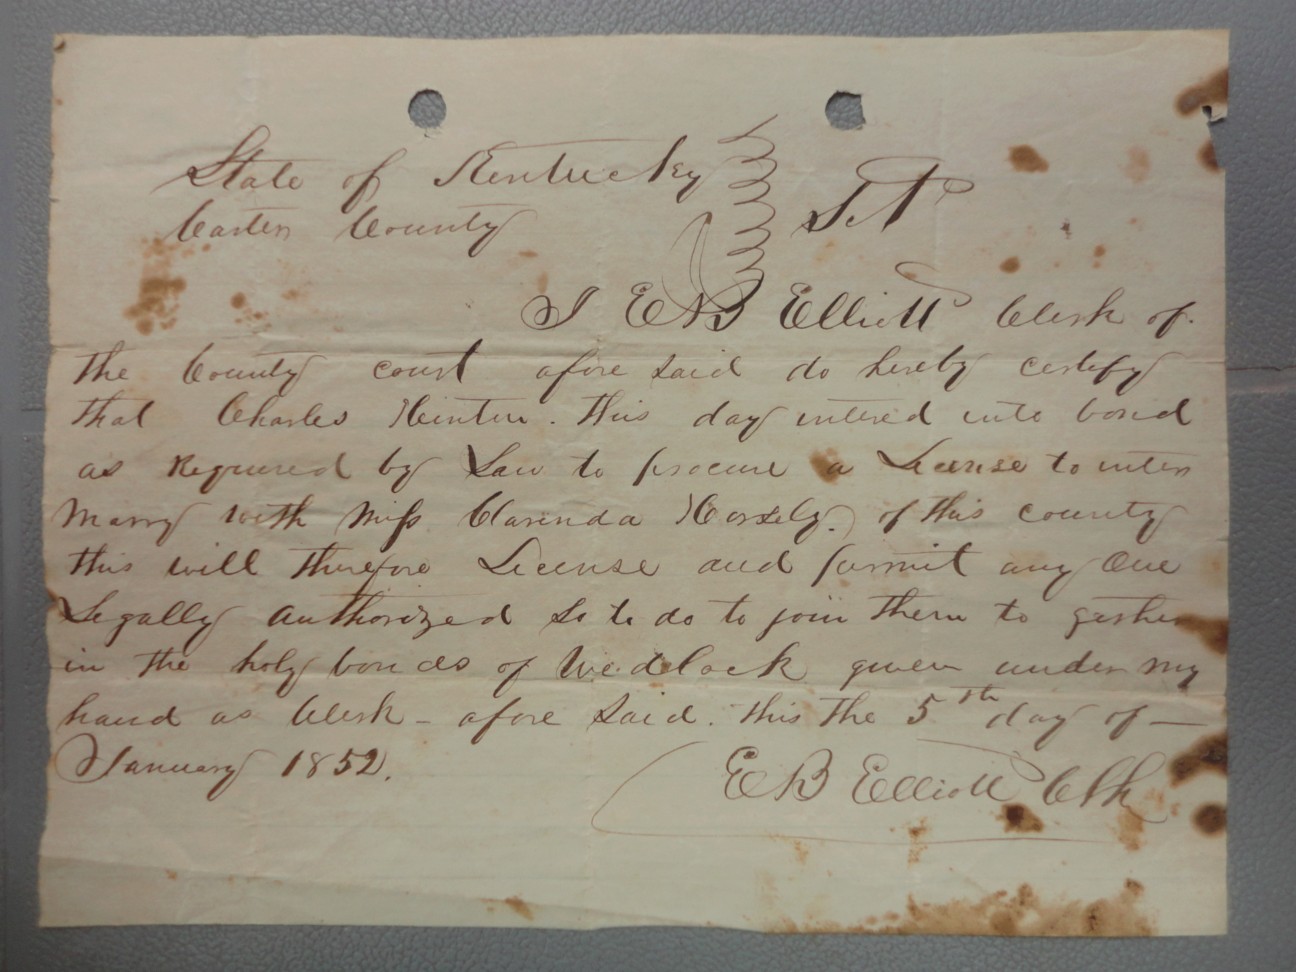 State of Kentucky
Carter County Sct
I E B Elliott Clerk of
the County court afore said do hereby certify
that Charles Hinton. This day intered into bond
as Required by Law to procure a License to inter
Marry with Miss Clarinda Horsely. of this county
this will therefore License and permit any One
Legally authorized so to do to join them to gether
in the holy bonds of Wedlock given under my
hand as Clerk - afore said. this the 5th day of —
January 1852.
E B Elliott Clk